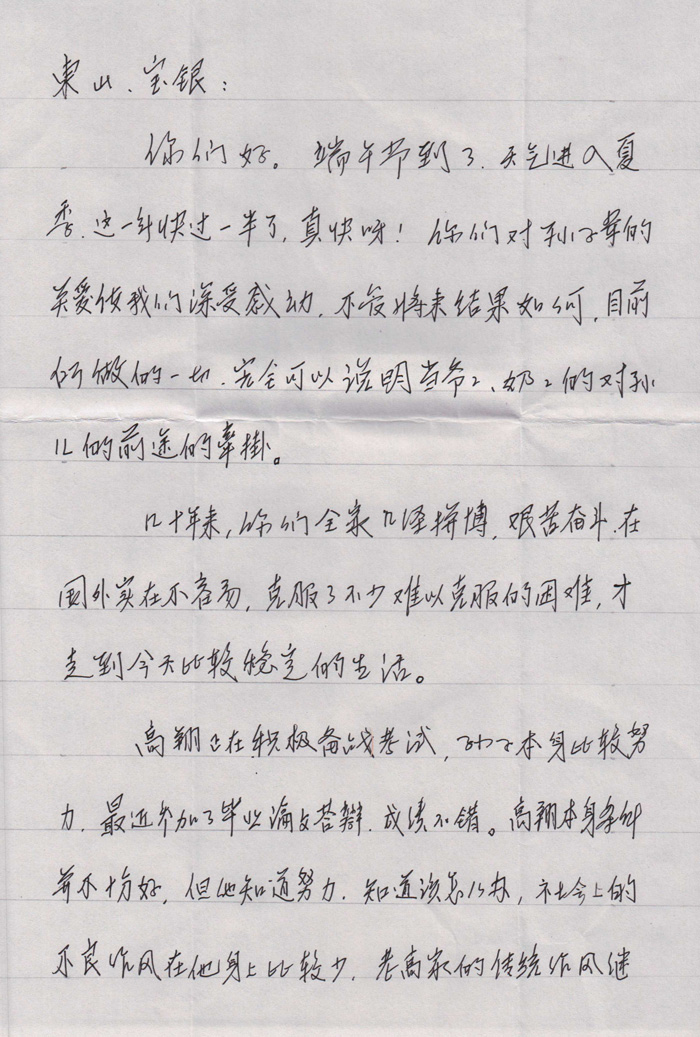 東山、宝银：
你们好。端午节到了、天气进入夏
季、这一年快过一半了，真快呀！你们对孙子辈的
关爱使我们深受感动，不管将来结果如何，目前
所做的一切、完全可以说明当爷〻、奶〻的对孙
儿的前途的牵掛。
几十年来，你们全家几经拼博，艰苦奋斗、在
国外实在不容易，克服了不少难以克服的困难，才
走到今天比较稳定的生活。
高翔正在积极备战考试，孙子本身比较努
力、最近参加了毕业论文答辩、成绩不错。高翔本身条件
并不十分好，但他知道努力、知道该怎么办，社会上的
不良作风在他身上比较少，老高家的传统作风继